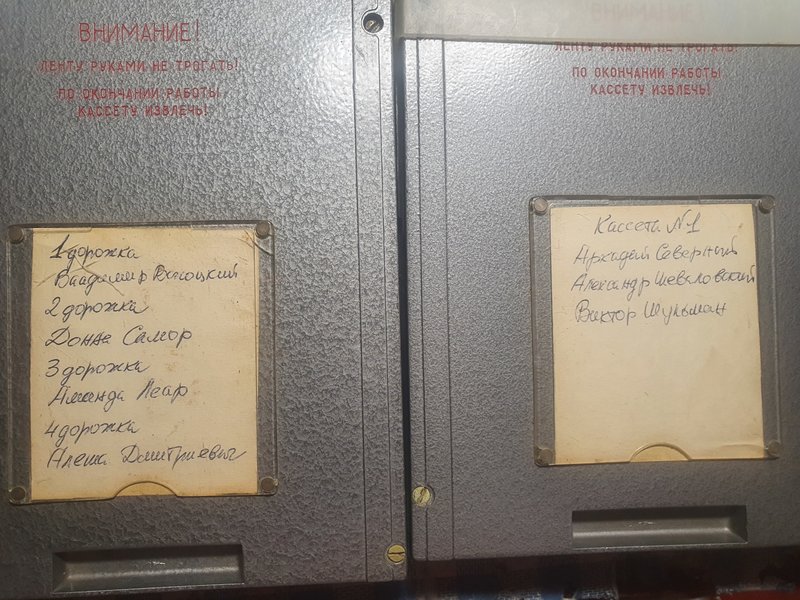 ВНИМАНИЕ!
ЛЕНТУ РУКАМИ НЕ ТРОГАТЬ!
ПО ОКОНЧАНИИ РАБОТЫ
КАССЕТУ ИЗВЛЕЧЬ!
1 дорожка
Владимир Высоцкий
2 дорожка
Донна Самор
3 дорожка
Аманда Леар
4 дорожка
Алеша Дмитриевич
ВНИМАНИЕ!
ЛЕНТУ РУКАМИ НЕ ТРОГАТЬ!
ПО ОКОНЧАНИИ РАБОТЫ
КАССЕТУ ИЗВЛЕЧЬ!
Кассета №1
Аркадий Северный
Александр Шеваловский
Виктор Шульман